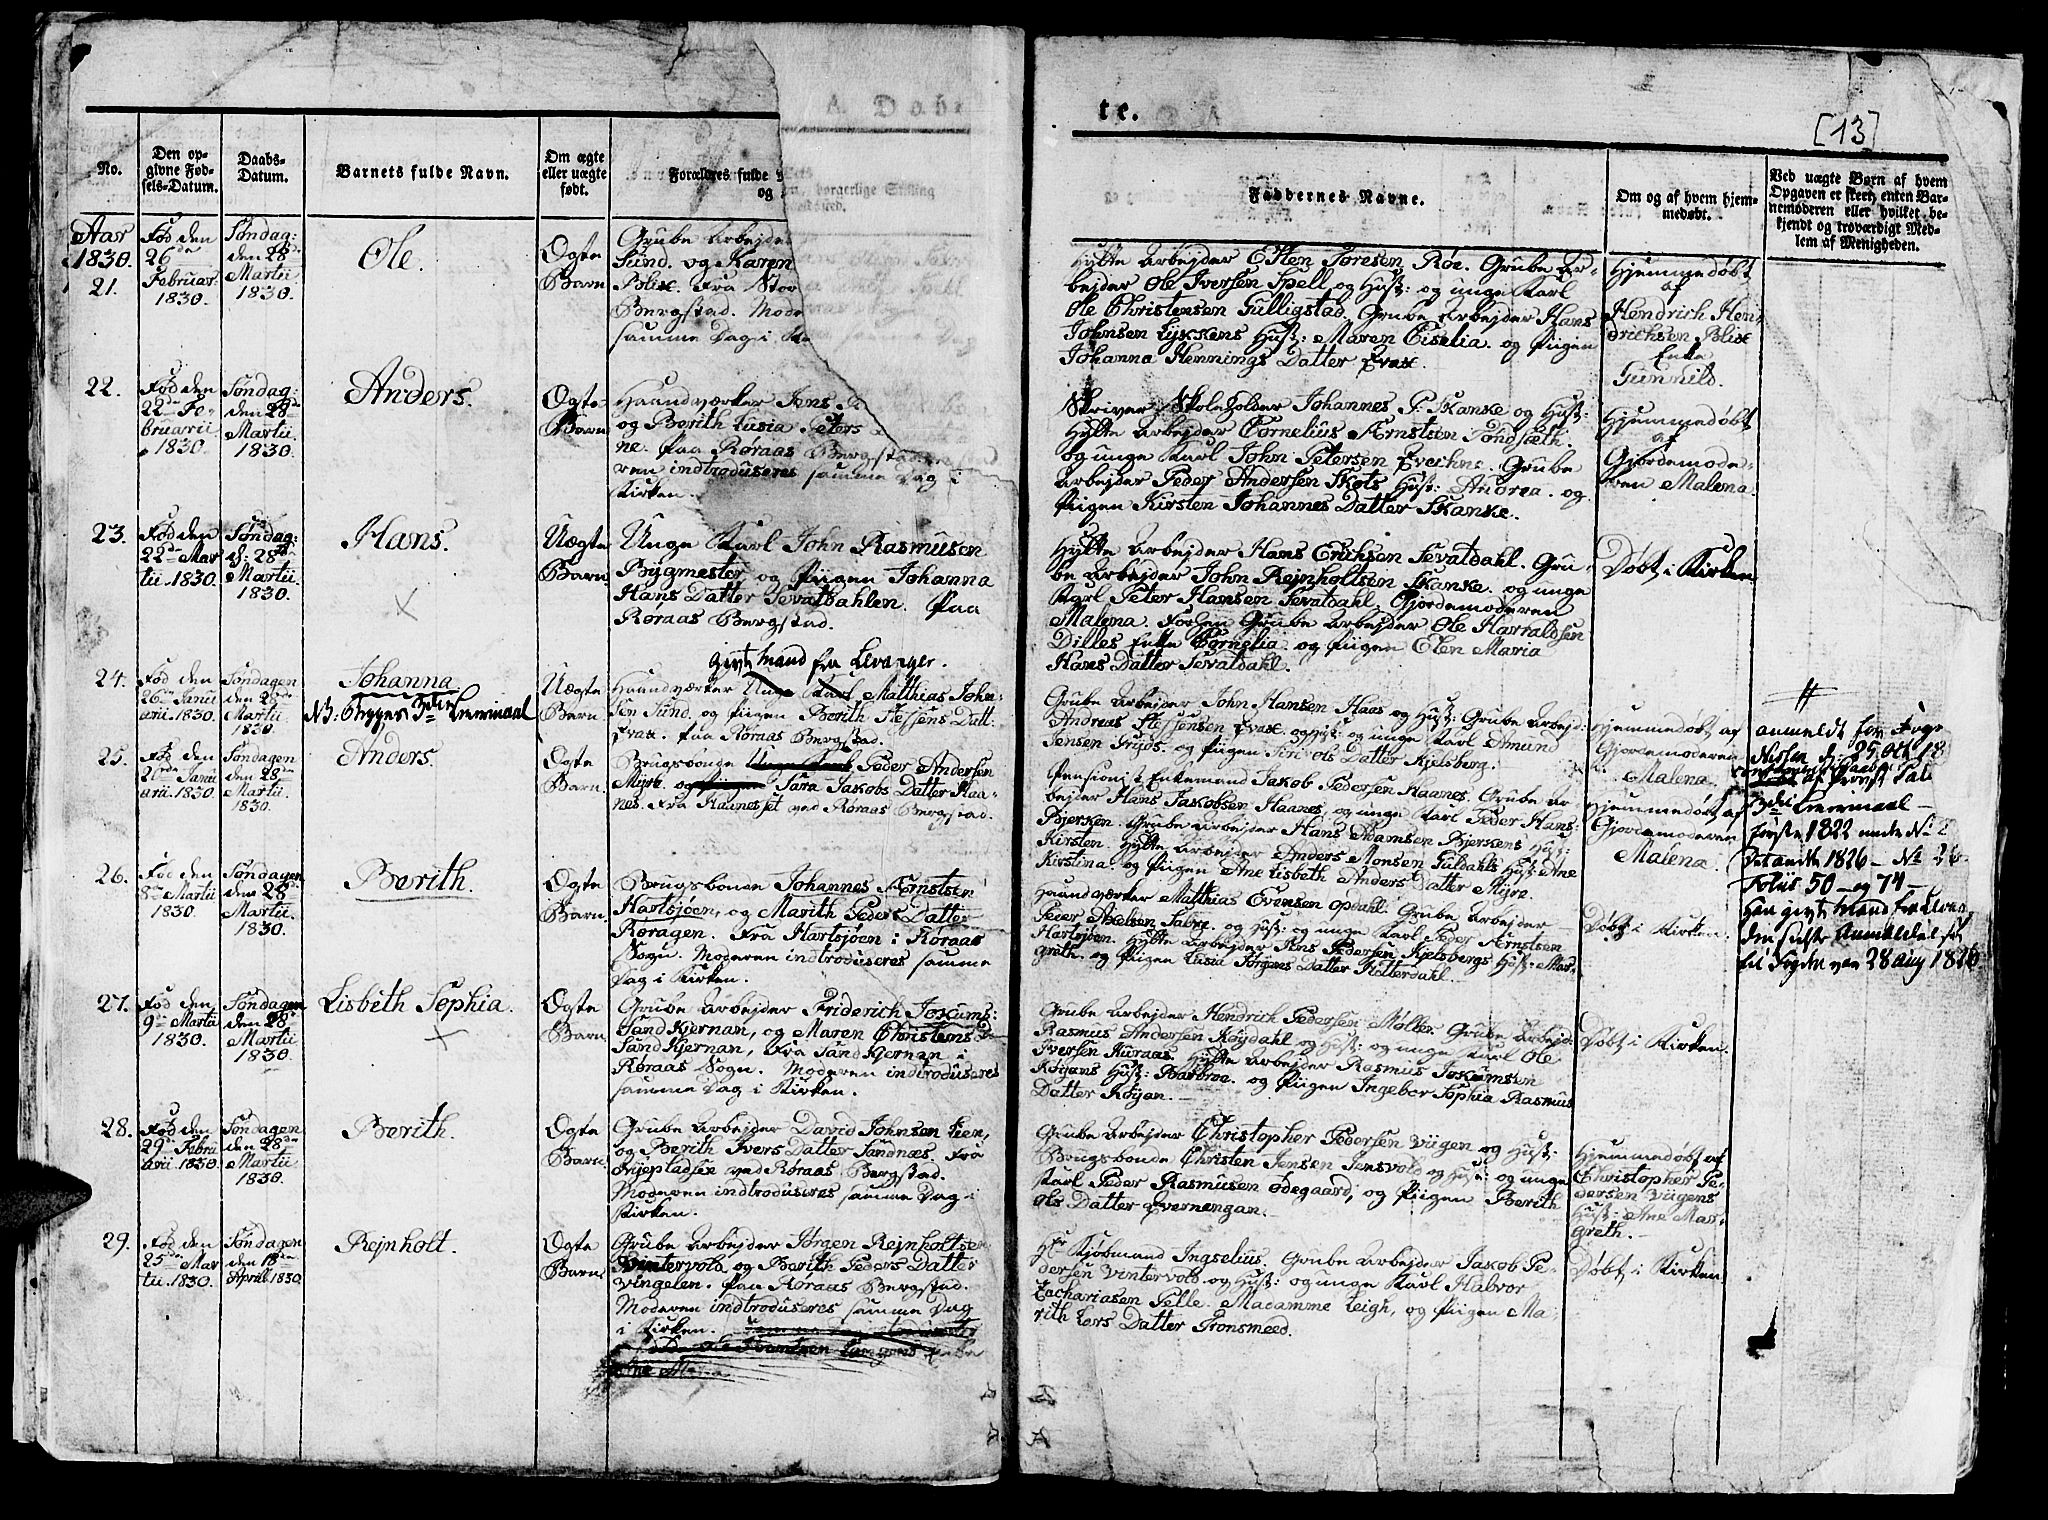 A. Døbte.
[13]
No.
Den opgivne Fødsels-Datum.
Daabs-Datum.
Barnets fulde Navn.
Om ægte eller uægte født.
Forældres fulde
og
borgerlige Stilling
Faddernes Navne.
Om og af hvem hjemmedøbt.
Ved uægte Børn af hvem Opgaven er skeet, enten Barnemoderen eller hvilket bekjendt og troværdigt Medlem af Menigheden.
Aar
1830.
21.
Fød den
26de
Februar
1830.
Søndag:
den 28de
Martii
1830.
Ole.
Ogte
Barn
Grube Arbejder
Sund. og Karen
Polix. Fra Stor
Bergstad. Mode
samme Dag i
Hytte Arbejder Esten Toresen Røe. Grube Ar-
bejder Ole Iversen Spell og Hust: og unge Karl
Ole Christensen Gulligstad. Grube Arbejder Hans
Johnsen Lykkens Hust: Maren Eiselia. og Piigen
Johanna Hemnings Datter Evax.
Hjemmedøbt
af
Hendrich Hen
drichsen Polix
Enke
Gunhild.
22.
Fød den
22de Fe-
bruarii
1830.
Søndag:
den 28de
Martii
1830.
Anders.
Ogte
Barn
Haandværker Jens
og Berith Lusia Peters
ne. Paa Røraas Bergstad
ren indtroduseres samme Dag i
Kirken.
Skriver Skoleholder Johannes P. Skanke og Hust:
Hytte Arbejder Cornelius Ærnstsen Tondsæth.
og unge Karl John Petersen Evehne. Grube
Arbejder Peder Andersen Skots Hust: Andrea. og
Piigen Kirsten Johannes Datter Skanke.
Hjemmedøbt
af
Gjordemode-
ren Malena.
23.
Fød den
22de Mar
tii 1830.
Søndag:
d: 28de
Martii
1830.
Hans.
Uægte
Barn.
Unge Karl John Rasmusen
Bygmester og Piigen Johanna
Hans Datter Sevatdahlen. Paa
Røraas Bergstad.
Hytte Arbejder Hans Erichsen Sevatdahl. Gru-
be Arbejder John Rejnholtsen Skanke. og unge
Karl Peter Hansen Sevatdahl. Gjordemoderen
Malena. Forhen Grube Arbejder Ole Harraldsen
Dilles Enke Cornelia. og Piigen Elen Maria
Hans Datter Sevatdahl.
Døbt i Kirken
24.
Fød den
26de Janu
arii. 1830.
Søndagen
den 28de
Martii
1830.
Johanna
NB. 3die Leiermaal
Uægte
Barn.
givt Mand fra Levanger.
Haandværker Unge Karl Matthias John-
sen Sund. og Piigen Berith Steffens Datt:
Evax. Paa Røraas Bergstad.
Grube Arbejder John Hansen Haas og Hust: Grube Arbejd:
Andreas Steffensen Evax og Hust: og unge Karl Amund
Jensen Tryds. og Piigen Siri Ols Datter Kjelsberg.
Hjemmedøbt af
Gjordemoderen
Malena.
anmeldt for Foge
Nissen d: 25 Oct 18
3die Leiermaal –
første 1822 under No 2
Det andet 1826 – No 26
Foliis 50 – og 74 –
Han givt Mand fra Leva
den sidste Anmeldel
til Fogden var 28 aug 1826
25.
Fød den
26de Janu
arii. 1830.
Søndagen
den 28de
Martii
1830.
Anders.
Ogte
Barn.
Brugsbonde Unge Karl Peder Andersen
Myre. og Piigen Sara Jakobs Datter Haa-
nes. Fra Haanesset ved Røraas Bergstad.
Pensionist Enkemand Jakob Pedersen Haanes. Grube Ar
bejder Hans Jakobsen Haanes. og unge Karl Peder Hans:
Bjerken. Grube Arbejder Hans Adamsen Bjerkens Hust:
Kirsten. Hytte Arbejder Anders Monsen Guldahls Hust: Ane
Kirstina. og Piigen Ane Lisbeth Anders Datter Myre.
Hjemmedøbt af
Gjordemoderen
Malena.
26.
Fød den
8de Martii
1830.
Søndagen
den 28de
Martii
1830.
Berith.
Ogte
Barn.
Brugsbonde Johannes Ærnstsen
Hartsjøen, og Marith Peders Datter
Røragen. Fra Hartsjøen i Røraas
Sogn. Moderen indtroduseres samme
Dag i Kirken.
Haandværker Matthias Evensen Opdahl. Grube Arbejder
Peier Axelsen Sabre. og Hust: og unge Karl Peder Ærnstsen
Hartsjøen. Hytte Arbejder Jens Pedersen Kjelsbergs Hust: Mar-
greth. og Piigen Lusia Jørgens Datter Hitterdahl.
Døbt i Kirken.
27.
Fød den
9de Martii
1830.
Søndagen
den 28de
Martii
1830.
Lisbeth Sophia.
Ogte
Barn.
Grube Arbejder Friderich Jokums:
Sand Kjernan, og Maren Christens D
Sand Kjernan, Fra Sand Kjernan i
Røraas Sogn. Moderen indtroduseres
samme Dag i Kirken.
Grube Arbejder Hendrich Pedersen Møller. Grube Arbejd:
Rasmus Andersen Køydahl og Hust: og unge Karl Ole
Iversen Auraas. Hytte Arbejder Rasmus Jokumsen
Køyans Hust: Barbroe. og Piigen Ingebor Sophia Rasmus
Datter Køyan.
Døbt i Kirken.
28.
Fød den
29de Febru
arii. 1830.
Søndagen
den 28de
Martii
1830.
Berith.
Ogte
Barn.
Grube Arbejder David Johnsen Lien,
og Berith Ivers Datter Sandnæs. Fra
Nyepladsen ved Røraas Bergstad.
Moderen indtroduseres samme Dag i
Kirken.
Grube Arbejder Christopher Pedersen Viigen og Hust:
Brugsbonde Christen Jensen Jensvold og Hust: og unge
Karl Peder Rasmusen Ødegaard, og Piigen Berith
Ols Datter Evernengan.
Hjemmedøbt af
Christopher Pe-
dersen Viigens
Hust: Ane Mar-
greth.
29.
Fød den
25de Mar
tii. 1830.
Søndagen
den 18de
April 1830.
Rejnholt.
Ogte
Barn.
Grube Arbejder Jørgen Rejnholtsen
Vintervold og Berith Peders Datter
Vingelen. Paa Røraas Bergstad.
Moderen indtroduseres samme Dag
i Kirken.
Hr Kjøbmand Ingselius. Grube Arbejder Jakob Pe-
dersen Vintervold. og Hust: og unge Karl Halvor
Zachariasen Selle. Madamme Leigh, og Piigen Ma-
rith Lars Datter Tronsmeed.
Døbt i Kirken.